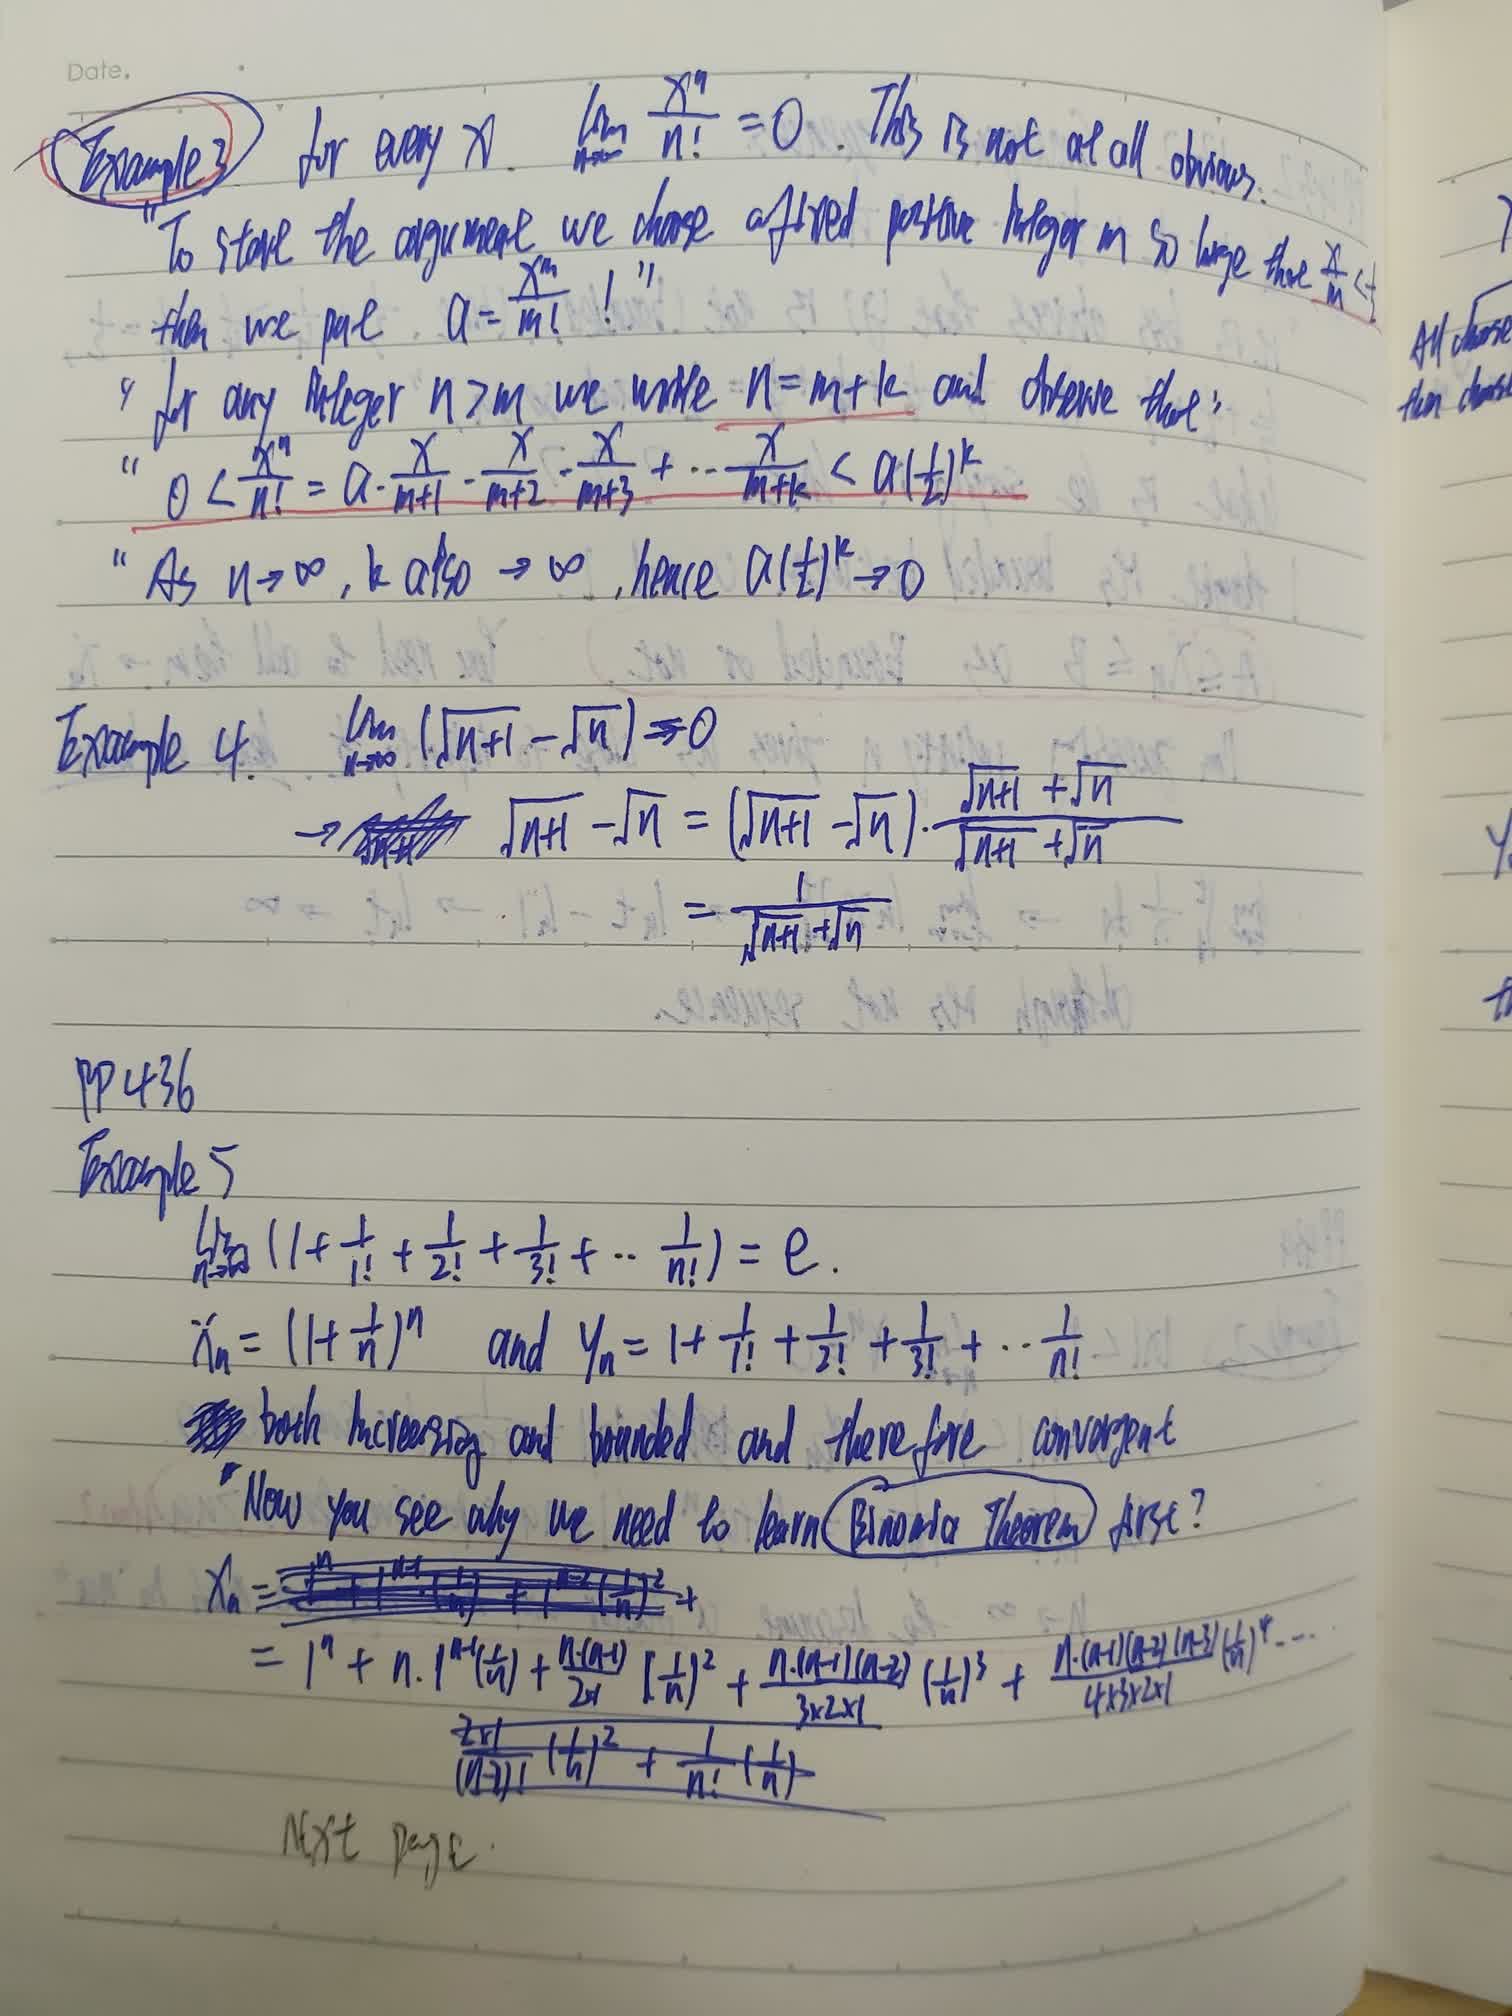 Date.
Example 3 for every x. lim n→∞ x^n/n! = 0. This is not at all obvious.
"To start the argument we choose a fixed positive integer m so large that x/m <
then we put. a = x^m/m! !"
" for any integer n > m we write n = m+k and observe that"
" 0 < x^n/n! = a · x/m+1 · x/m+2 · x/m+3 + ··· x/m+k < a(1/2)^k
" As n→∞, k also →∞, hence a(1/2)^k → 0
Example 4. lim n→∞ (√n+1 - √n) ⇒ 0
→ √n+1 - √n = (√n+1 - √n) · √n+1 + √n / √n+1 + √n
= 1 / √n+1 + √n
PP 436
Example 5
lim n→∞ (1 + 1/1! + 1/2! + 1/3! + ·· 1/n!) = e.
xn = (1 + 1/n)^n and yn = 1 + 1/1! + 1/2! + 1/3! + ·· 1/n!
both increasing and bounded and therefore convergent
"Now you see why we need to learn Binomia Theorem first?
xn = +
= 1^n + n·1^n-1(1/n) + n·(n-1)/2×1 (1/n)^2 + n·(n-1)(n-2)/3×2×1 (1/n)^3 + n·(n-1)(n-2)(n-3)/4×3×2×1 (1/n)^4 ····
2×1/(n-2)! (1/n)^2 + 1/n! (1/n)
Next page.
All choose
then choose